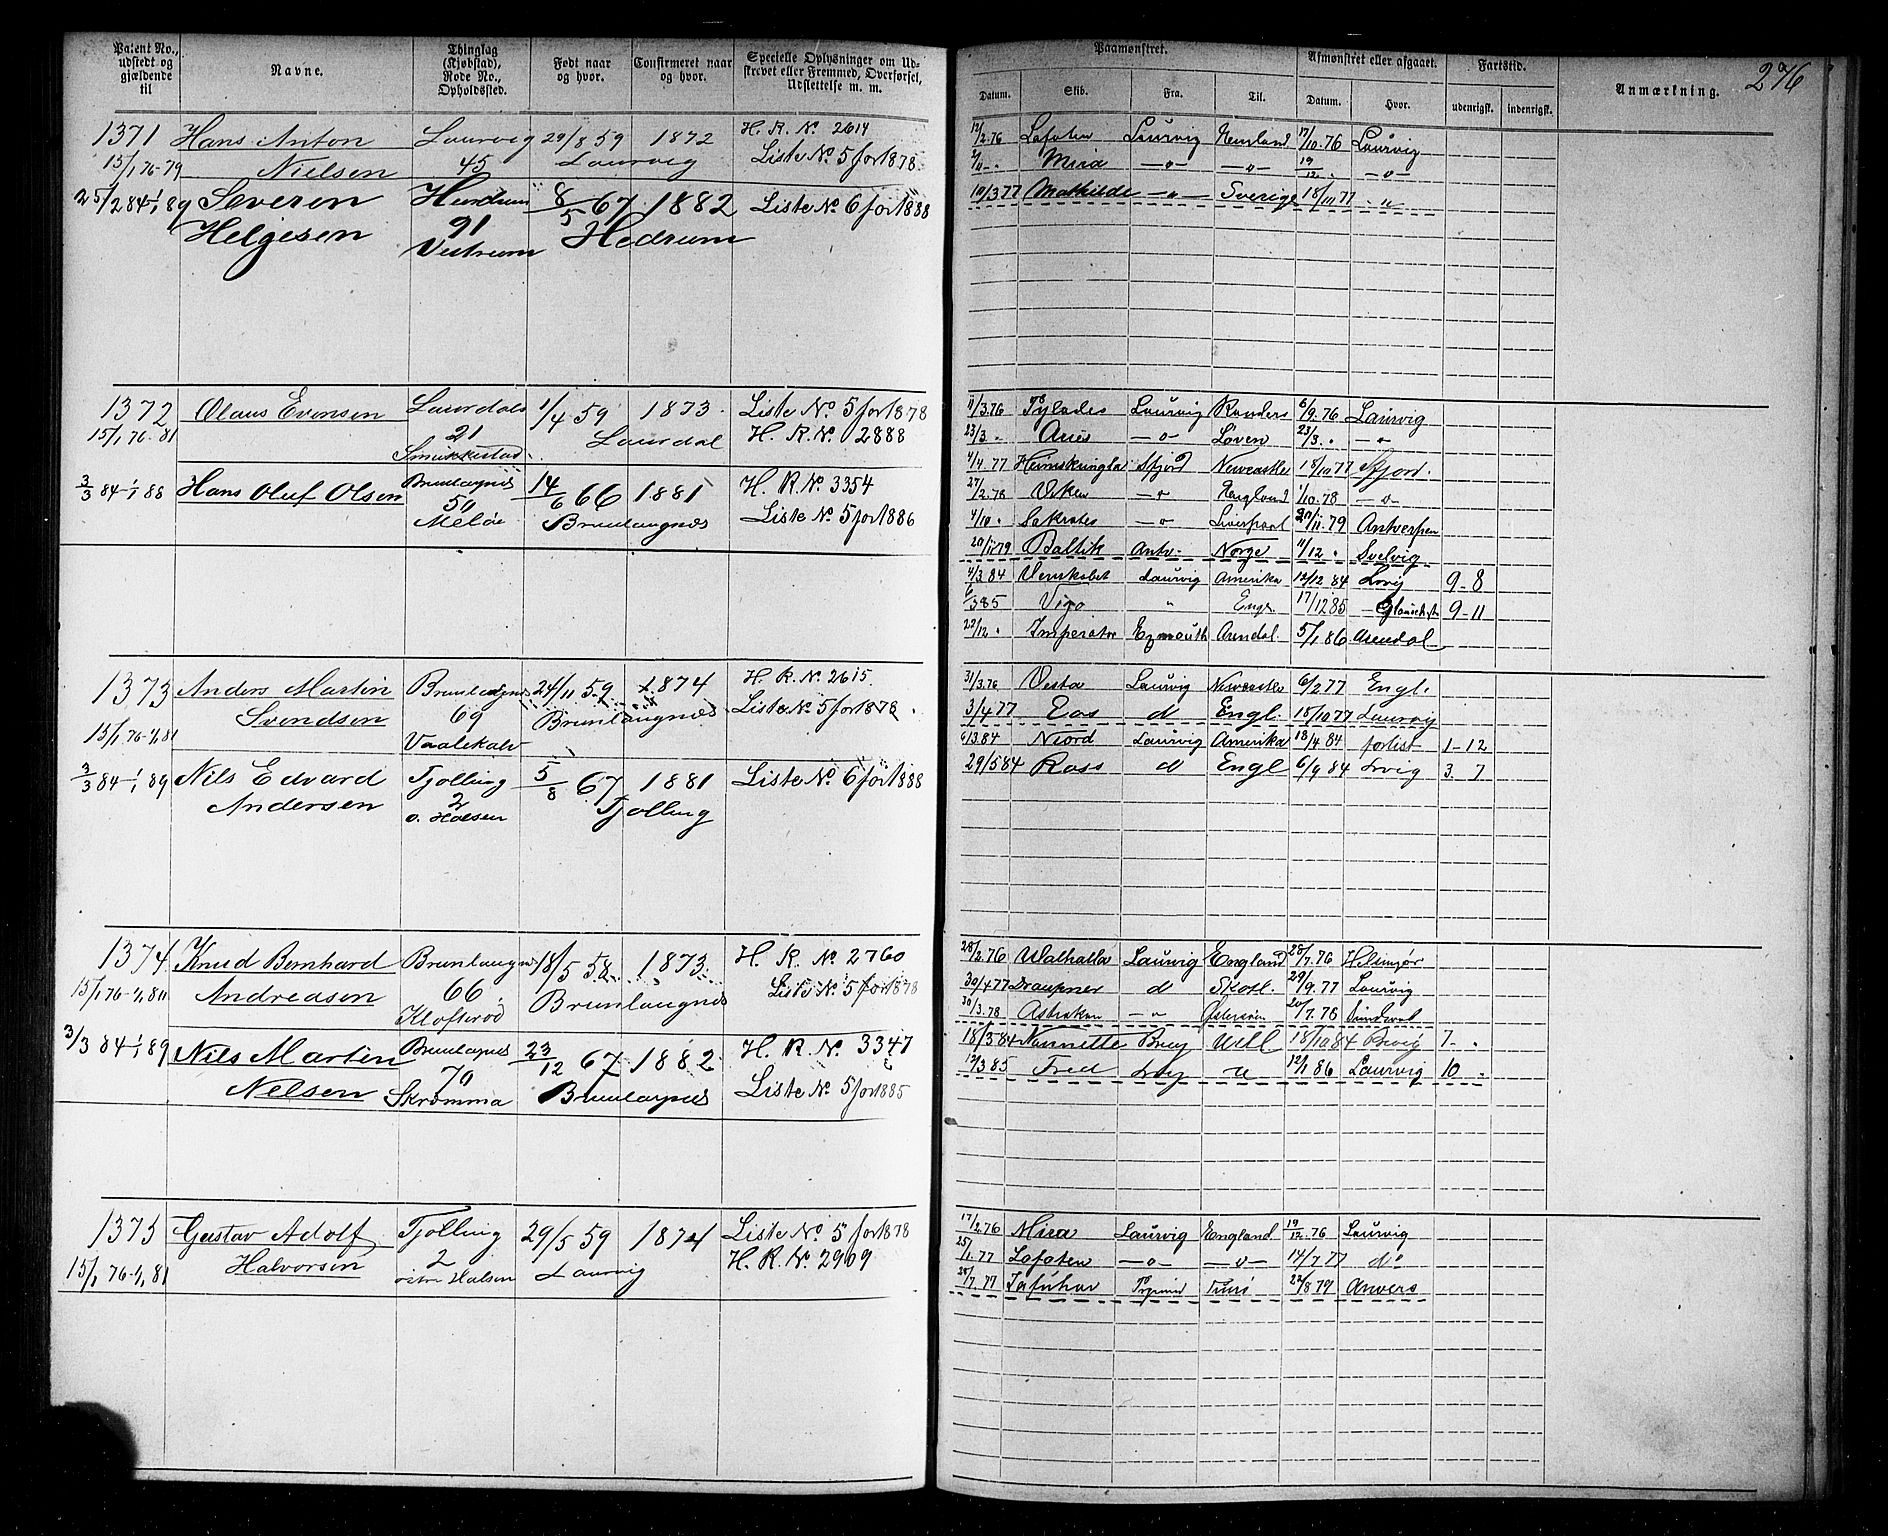 Patent No., udstedt og gjældende til
Navne.
Thinglag (Kjøbstad), Rode No., Opholdssted.
Født naar og hvor.
Confirmeret naar og hvor.
Specielle Oplysninger om Udskrevet eller Fremmed, Overførsel, Udslettelse m. m.
1371 Hans Anton Laurvig 29/8 59 1872 H. R. No 2614
15/1 76-79 Nielsen 45 Laurvig Liste No 5 for 1878
25/2 84-1/1 89 Severin 8/5 67 1882 Liste No 6 for 1888
Helgesen 91 Hedrum
Vestrum
1372 Olaus Evensen Laurdal 1/4 59 1873 Liste No 5 for 1878
15/1 76-81 21 Laurdal H. R. No. 2888
3/3 84-1/1 88 Hans Oluf Olsen Brunlagnes 14/6 66 1881 H. R. No. 3354
50 Brunlaugnæs Liste No 5 for 1886
Meløe
1373 Anders Martin Brunlagnes 24/11 59 1874 H. R. No. 2615
Svendsen 69 Brunlaugnæs Liste No 5 for 1878
15/1 76-1/1 81
3/3 84-1/1 89 Nils Edvard Tjølling 5/8 67 1881 Liste No 6 for 1888
Andersen 2 Tjølling
ø. Halsen
1374 Knud Bernhard Brunlaugnes 18/5 58 1873 H. R. No 2760
15/1 76-1/1 81 Andreasen 66 Brunlaugnes Liste No 5 for 1878
Klofterød
3/3 84-1/1 89 Nils Martin Brunlagnes 23/12 67 1882 H. R. No. 3347
Nelsen 70 Brunlagnes Liste No 5 for 1885
Skromma
1375 Gustav Adolf Tjølling 29/5 59 1874 Liste No 5 for 1878
Halvorsen 2 Laurvig H. R. No 2909
15/1 76-1/1 81 østre Halsen
Paamønstret.
Afmønstret eller afgaaet.
Fartstid.
Anmærkning.
276
Datum. Skib. Fra. Til. Datum. Hvor. udenrigsk. indenrigsk.
12/2 76 Lofoten Laurvig 17/10 76 Laurvig
Mira -o- -o- 19/12 -o-
10/3 77 Mathilde -"- Sverige 18/10 77 "
11/3 76 Pylades Laurvig Randers 6/9 76 Laurvig
23/3 " Aries -o- Loven 23/3 " -o-
4/4 77 Heimskringla Sfjord Newcastle 18/10 77 Sfjord.
27/2 78 Viken -o- England 1/10 78 -o-
4/10 " Sokrates -o- Liverpool 20/11 79 Antverpen
20/11 79 Baltik Antv. Norge 11/12 " Svelvig
4/3 84 Venskabet Laurvig Amerika 12/12 84 Lrvig 9-8
6/3 85 Vigo " Engl. 17/12 85 9-11
22/12 " Imperator Exmouth Arendal. 5/1 86 Arendal
31/3 76 Vesta Laurvig Newcastle 6/2 77 Engl.
3/4 77 Eos d Engl. 18/10 77 Laurvig
6/3 84 Niord Laurvig Amerika 18/4 84 forlist 1-12
29/5 84 Ross d Engl 6/9 84 Lrvig 3. 7
28/2 76 Walhalla Laurvig England 28/7 76 Helsingør
30/4 77 Draupner d Skotl. 29/9 77 Laurvig
30/3 78 Astrakan -o- Østersøen 20/7 78
18/3 84 Nannette Brevig Udl 18/10 84 Brevig 7- "
12/3 85 Fred Lrvig u 12/1 86 Laurvig 10 "
17/2 76 Mira Laurvig England 19/12 76 Laurvig
25/1 77 Lofoten -o- -o- 14/7 77 do
28/7 77 22/8 79 Anvers